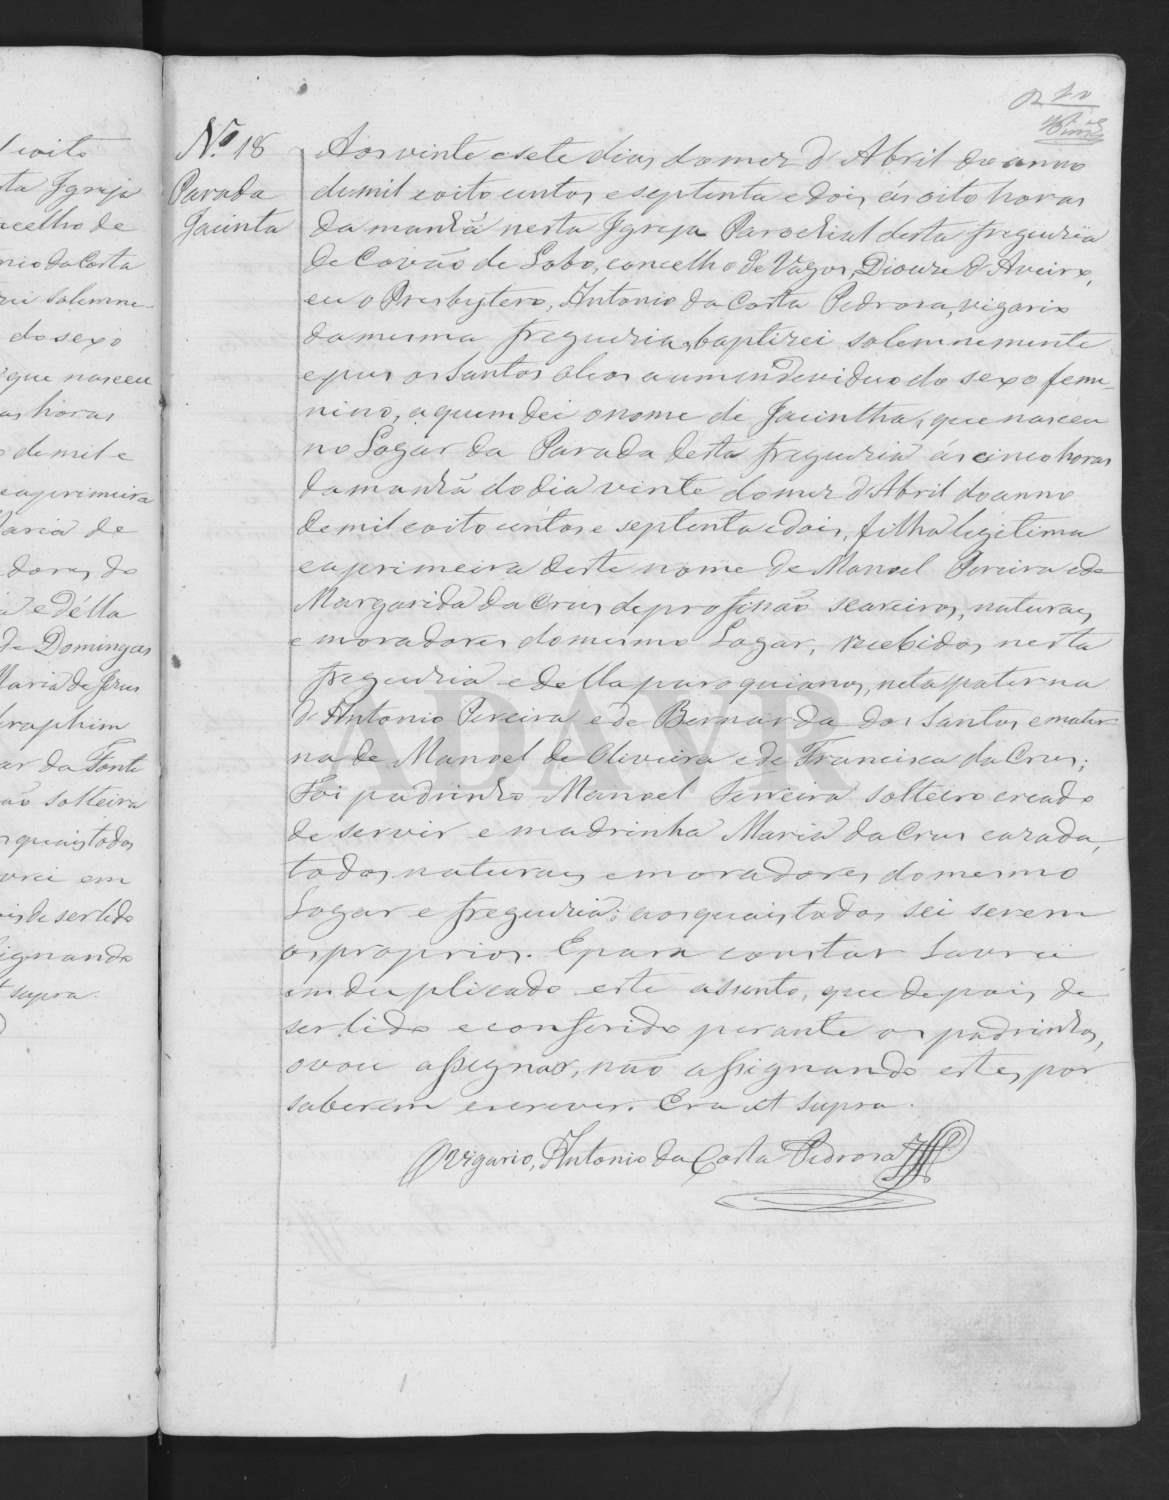 Nº 18
Parada
Jacinta
Aos vinte e sete dias do mez d'Abril do anno
de mil e oito centos e septenta e dois, ás oito horas
da manhã nesta Igreja Parochial desta freguezia
de Covão de Lobo, concelho de Vagos, Diocze d'Aveiro,
eu o Presbytero, Antonio da Costa Pedrosa, vigario
da mesma freguezia, baptizei solemnemente
e puz os Santos oleos a um individuo do sexo femi-
nino, a quem dei o nome de Jacintha, que nasceu
no Logar da Parada desta freguezia ás cinco horas
da manhã do dia vinte do mez d'Abril do anno
de mil e oito centos e septenta e dois, filha legitima
e a primeira deste nome de Manoel Pereira e de
Margarida da Crus de profissão seareiros, naturaes
e moradores do mesmo Logar, recebidos nesta
freguezia e della paroquianos, neta paterna
de Antonio Pereira e de Bernarda dos Santos e mater-
na de Manoel de Oliveira e de Francisca da Crus;
Foi padrinho Manoel Ferreira solteiro creado
de servir e madrinha Maria da Crus cazada,
todos naturaes e moradores do mesmo
Logar e freguezia; aos quais todos sei serem
os proprios. E para constar lavrei
em duplicado este assento, que depois de
ser lido e conferido perante os padrinhos,
o vou assignar, não assignando estes por
saberem escrever. Era ut supra.
O Vigario, Antonio da Costa Pedrosa
l e oito
ta Igreja
ncelho de
nio da Costa
zei solemne-
do sexo
que nasceu
as horas
o de mil e
e a primeira
Maria de
dores do
a e délla
de Domingas
Maria de Jezus
eraphim
ar da Fonte
ão solteira
s quais todos
vrei em
ois de ser lido
signando
t supra.
ADAVR